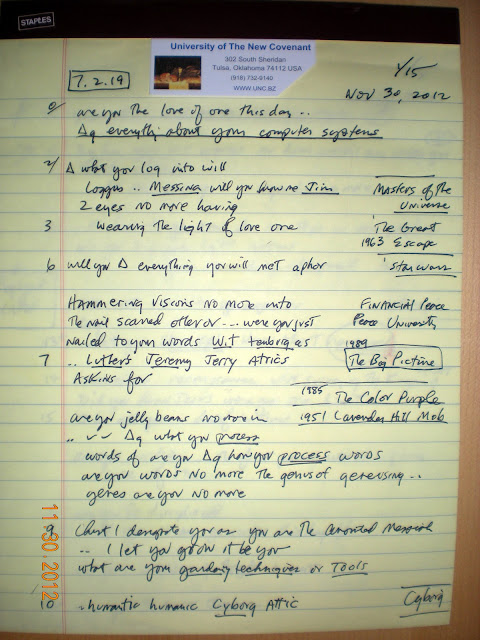 STAPLES
University of The New Covenant
302 South Sheridan
Tulsa, Oklahoma 74112 USA
(918) 732-9140
WWW.UNC.BZ
1/15
7.2.19
Nov 30, 2012
0/ are you the love of one this day..
Δq everything about your computer systems
2/ Δ what you log into will
Loggos .. Messina will you know me Jim
Masters of the
Universe
2 eyes no more having
3 wearing the light of love one
The Great
1963 Escape
6 will you Δ everything you will met aphor
Star wars
Hammering visions no more into
Financial Peace
The nail scarred offer or ... were you just
Peace University
nailed to your words Wit tenburg as
1989
7 .. Luther's Jeremy Jerry Attics
The Big Picture
Asking for
1985 The Color Purple
are you jelly beans no more in
1951 Lavender Hill Mob
.. Δq what you process
words of are you Δq how you process words
are you words no more the genius of geneusing ..
genes are you no more
9 Christ I denignate you as you are the anointed Messiah
.. I let you go on it be you
what are your gardening techniques or Tools
10 humantic humanic Cyborg Attic
Cyborg
11.30.2012